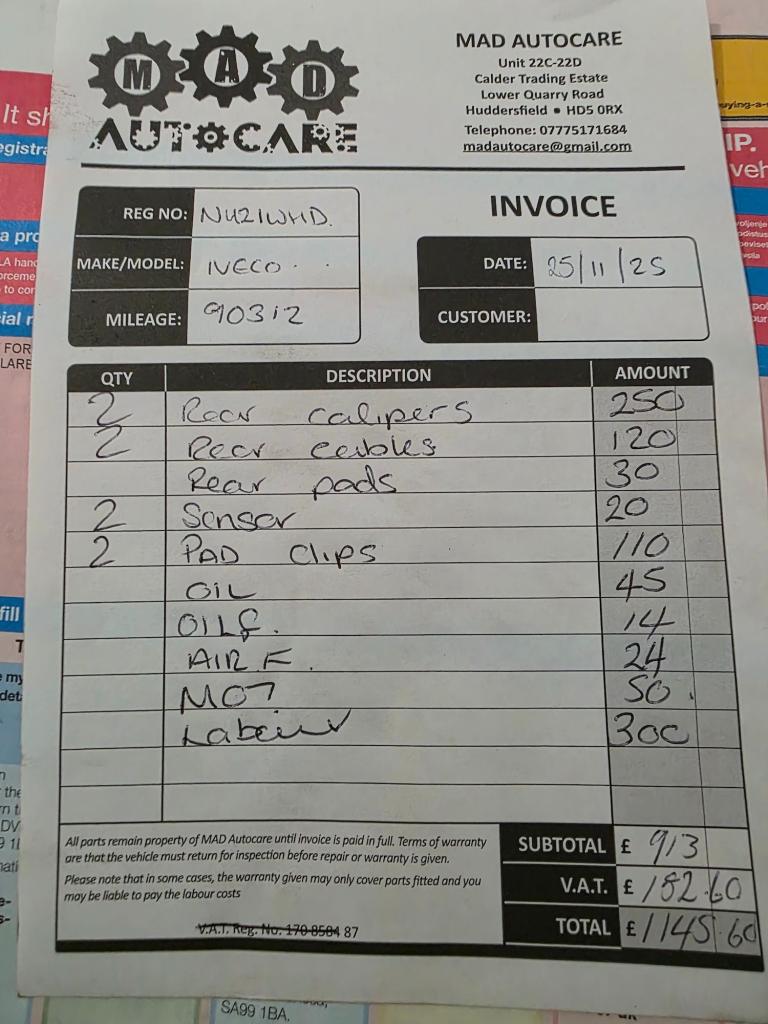 MAD
AUTOCARE
MAD AUTOCARE
Unit 22C-22D
Calder Trading Estate
Lower Quarry Road
Huddersfield • HD5 0RX
Telephone: 07775171684
madautocare@gmail.com
INVOICE
REG NO: NU21WHD.
MAKE/MODEL: IVECO
MILEAGE: 90312
DATE: 25/11/25
CUSTOMER:
QTY DESCRIPTION AMOUNT
2 Rear calipers 250
2 Rear 120
Rear pads 30
2 Sensor 20
2 PAD clips 110
OIL 45
OIL F. 14
AIR F. 24
MOT 50.
Labour 300
All parts remain property of MAD Autocare until invoice is paid in full. Terms of warranty
are that the vehicle must return for inspection before repair or warranty is given.
Please note that in some cases, the warranty given may only cover parts fitted and you
may be liable to pay the labour costs
V.A.T. Reg. No. 170 8584 87
SUBTOTAL £ 913
V.A.T. £ 182.60
TOTAL £ 1145.60
It
a pro
FOR
fill
IP.
veh
SA99 1BA.